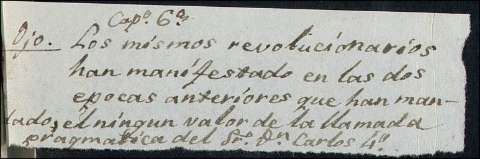 Capº. 6º.
Ojo. Los mismos revolucionarios
han manifestado en las dos
epocas anteriores que han man-
dado, el ningun valor de la llamada
pragmatica del Sr. Dn. Carlos 4º.